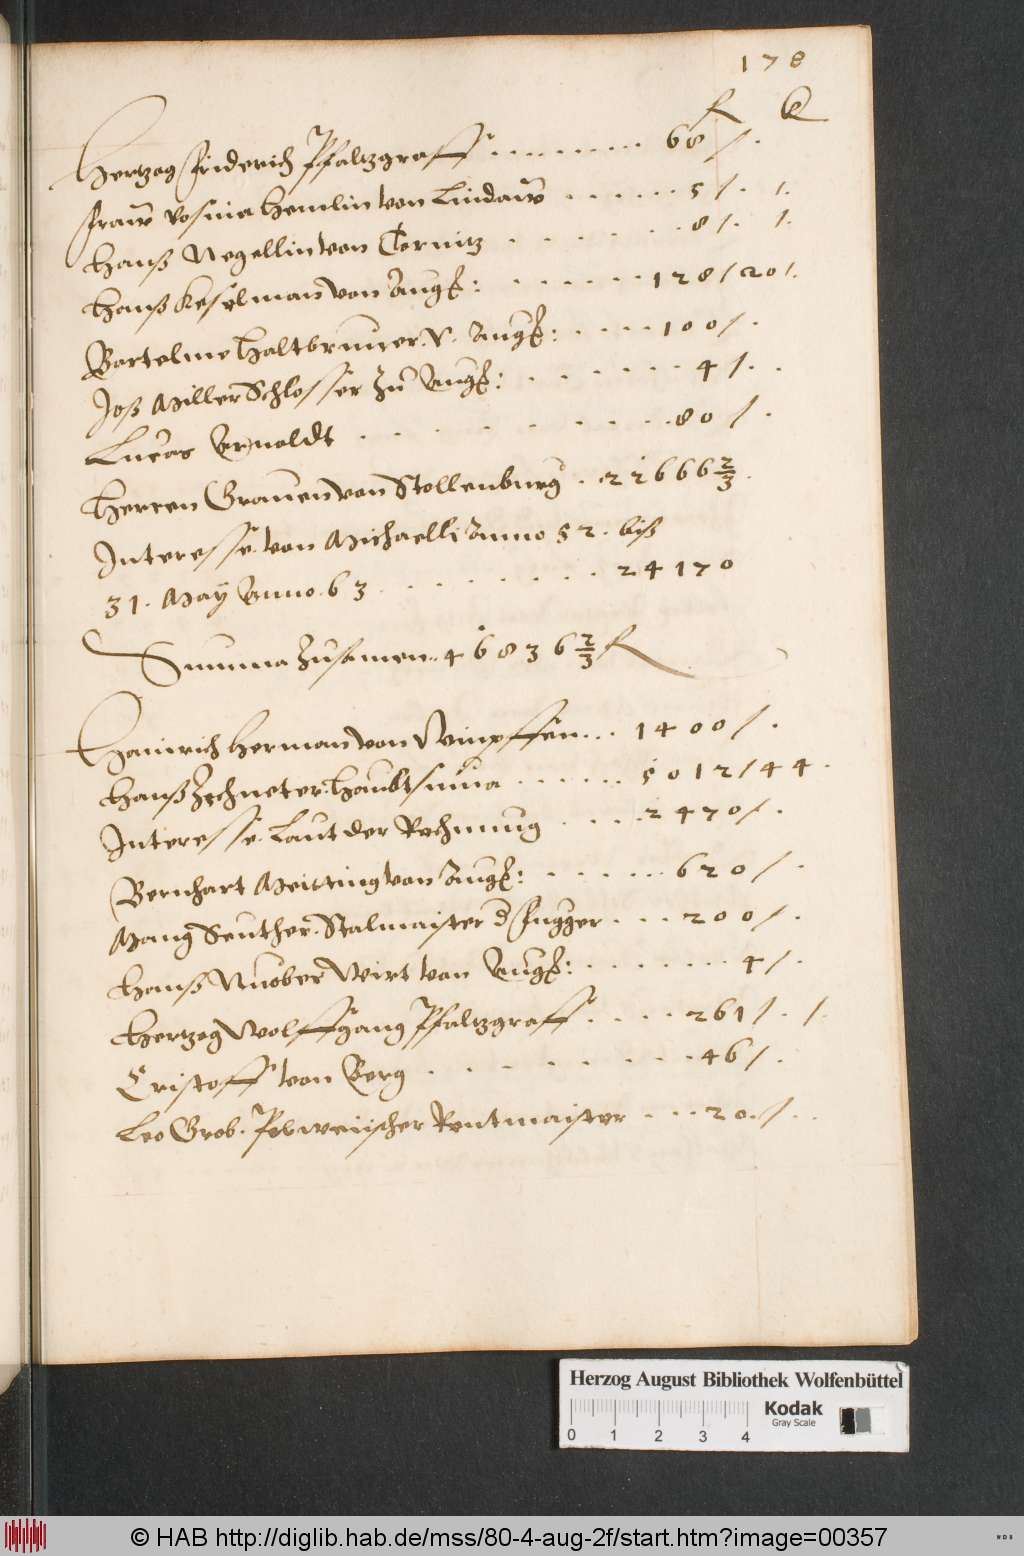 178
fl k
Hertzog Friderich Pfaltzgraff ......... 68 /.
Fraw Rosina Hemlin von Lindaw ...... 5 /. /.
Hanß Negellin von Cernitz ....... 8 /. /.
Hanß Keselman von Augß: ...... 128 / 20 /.
Bartelme Haltbrunner. v. Augß: ..... 100 /.
Joß Miller Schlosser Zu Augß: ....... 4 /.
Lucas Arnoldt ......... 80 /.
Herren Graven von Stollenburg . 22666 2/3.
Interesse. von Michaelli Anno 52. biß
31. May Anno. 63 ........ 24170
Summa Zusamen.. 46836 2/3 fl
Hainrich Herman von Wimpffen... 1400 /.
Hanß Zehneter. Haubtsuma ...... 5012 / 44.
Interesse. Laut der Rechnung .... 2470 /.
Bernhart Meitting von Augß: ...... 620 /.
Mang Seuther. Stalmaister d Fugger ... 200 /.
Hanß Nuober Wirt von Augß: ....... 4 /.
Hertzog Wolffgang Pfaltzgraff .... 261 /. /.
Cristoff von Berg ........ 46 /.
Leo Grob. Rentmaister ... 20. /.
Herzog August Bibliothek Wolfenbüttel
Kodak
Gray Scale
0 1 2 3 4
© HAB http://diglib.hab.de/mss/80-4-aug-2f/start.htm?image=00357